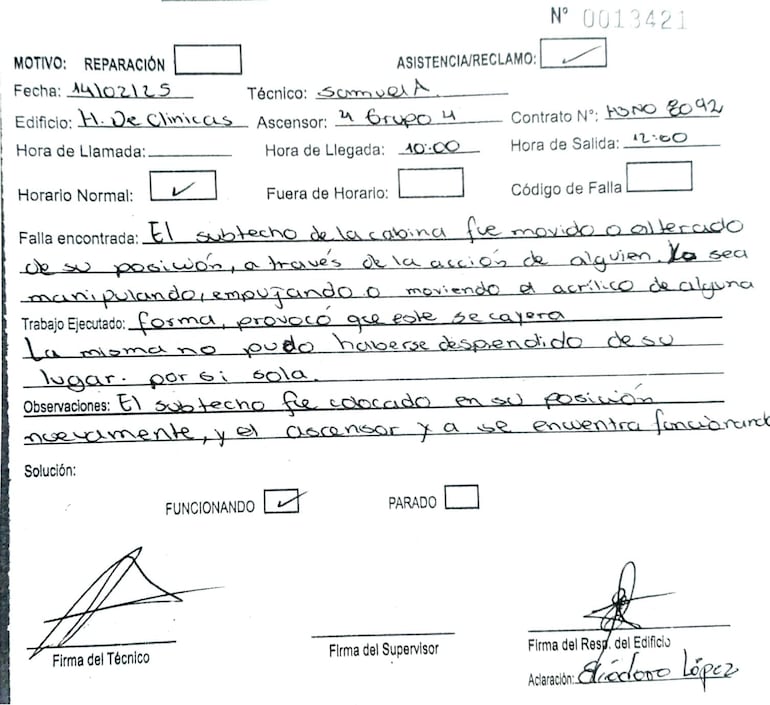 N° 0013421
MOTIVO: REPARACIÓN ASISTENCIA/RECLAMO: ✓
Fecha: 14/02/25 Técnico: Samuel A.
Edificio: H. De Clinicas Ascensor: 4 Grupo 4 Contrato N°: H3NO 8092
Hora de Llamada: Hora de Llegada: 10:00 Hora de Salida: 12:00
Horario Normal: ✓ Fuera de Horario: Código de Falla
Falla encontrada: El subtecho de la cabina fue movido o alterado
de su posición, a través de la acción de alguien. Ya sea
manipulando, empujando o moviendo el acrílico de alguna
Trabajo Ejecutado: forma, provocó que este se cayera
La misma no pudo haberse desprendido de su
lugar. por si sola.
Observaciones: El subtecho fue colocado en su posición
nuevamente, y el ascensor ya se encuentra funcionando
Solución:
FUNCIONANDO ✓ PARADO
Firma del Técnico Firma del Supervisor Firma del Resp. del Edificio
Aclaración: Eliódoro López